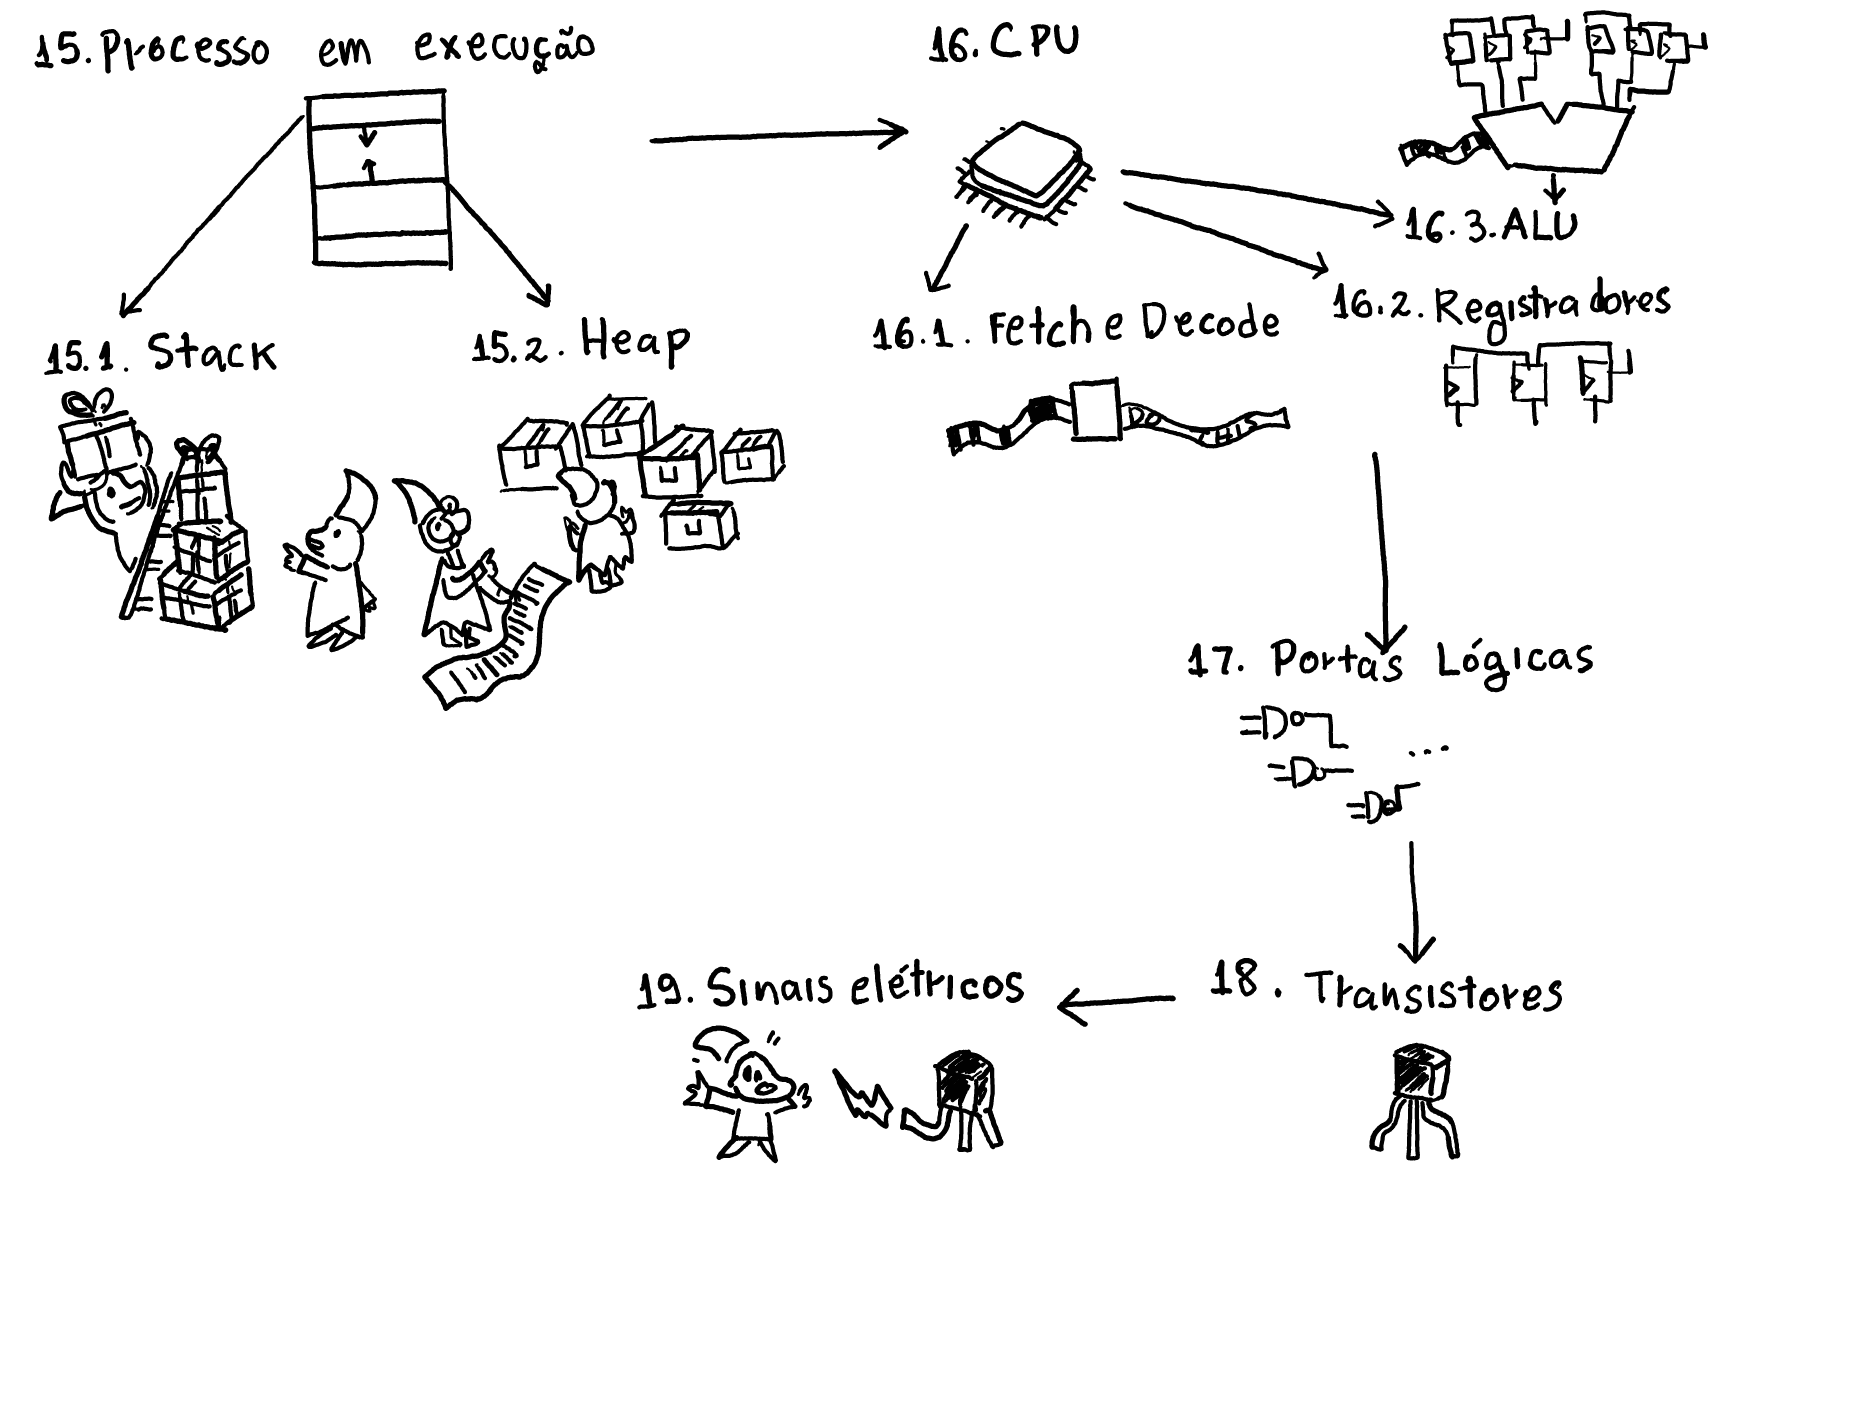 15. Processo em execução
16. CPU
16.3. ALU
16.2. Registradores
15.1. Stack
15.2. Heap
16.1. Fetch e Decode
DO THIS
17. Portas Lógicas
...
18. Transistores
19. Sinais elétricos